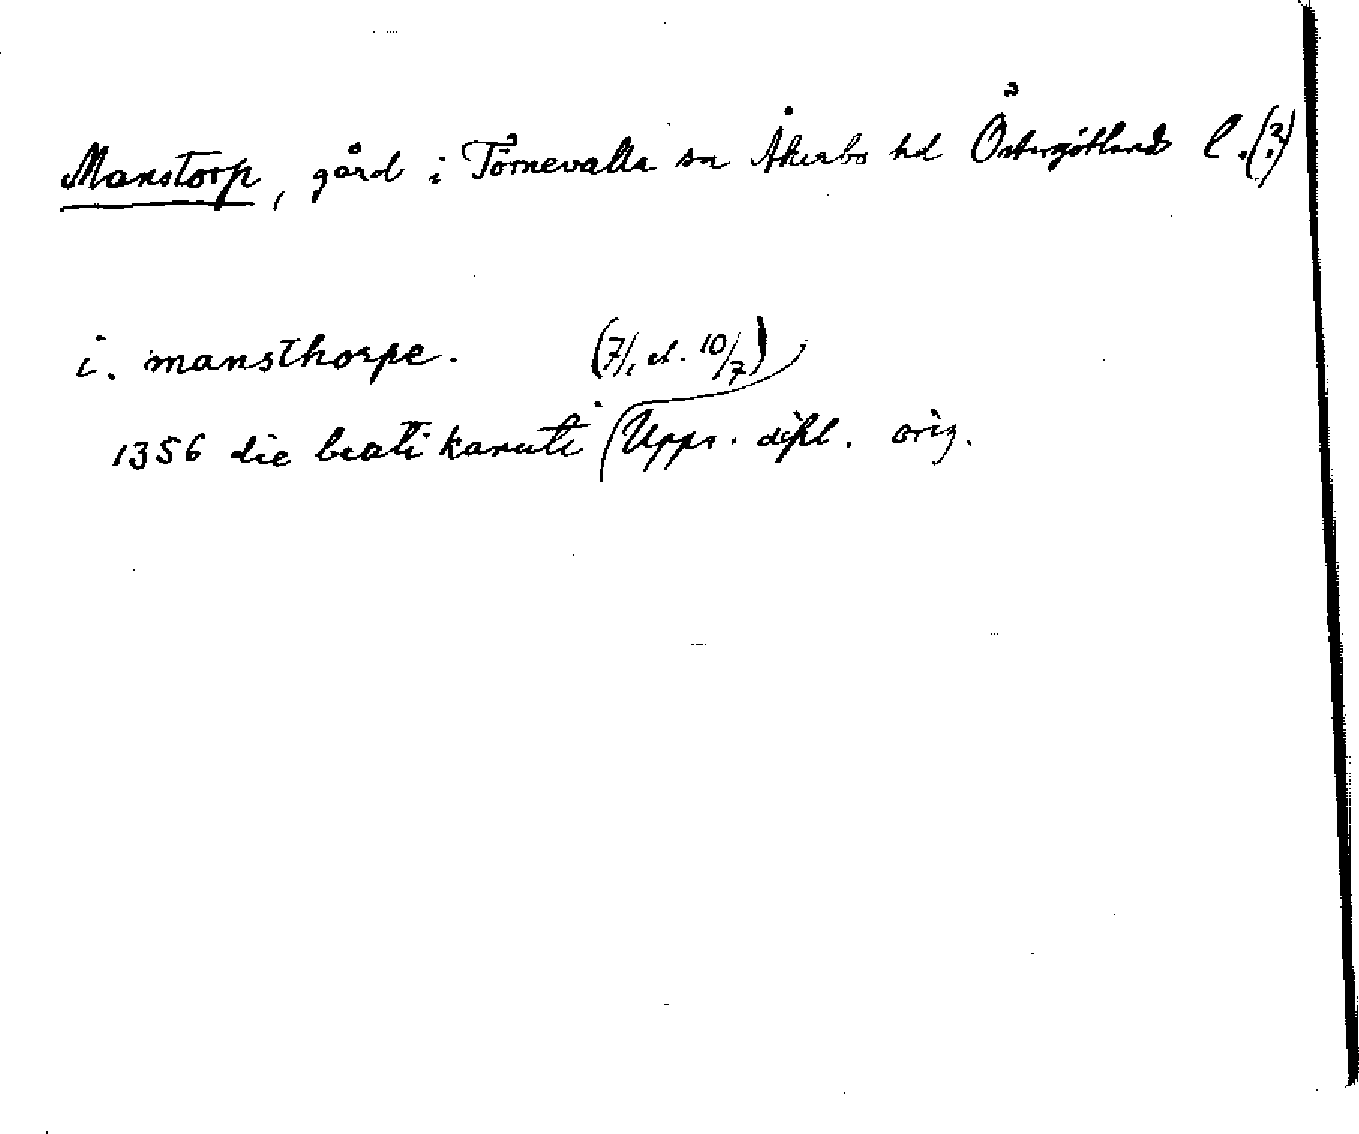 Manstorp, gård i Törnevalla sn Åkerbo hd Östergötlands l. (?)
i. mansthorpe.
1356 die beati kanuti (7/1 el. 10/7) Upps. dipl. orig.